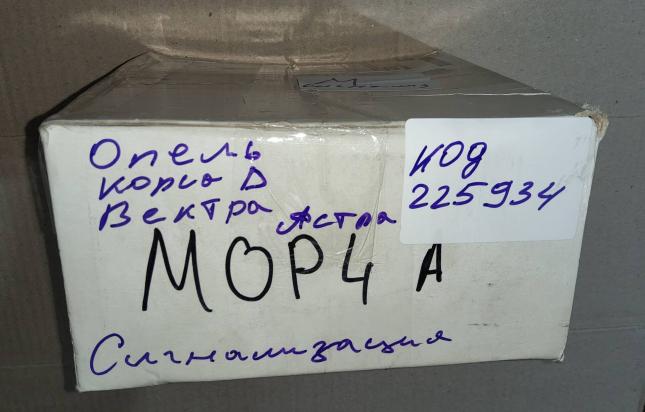 Опель
корса D
Вектра Астра
код
225934
МОРЧ А
Сигнализация